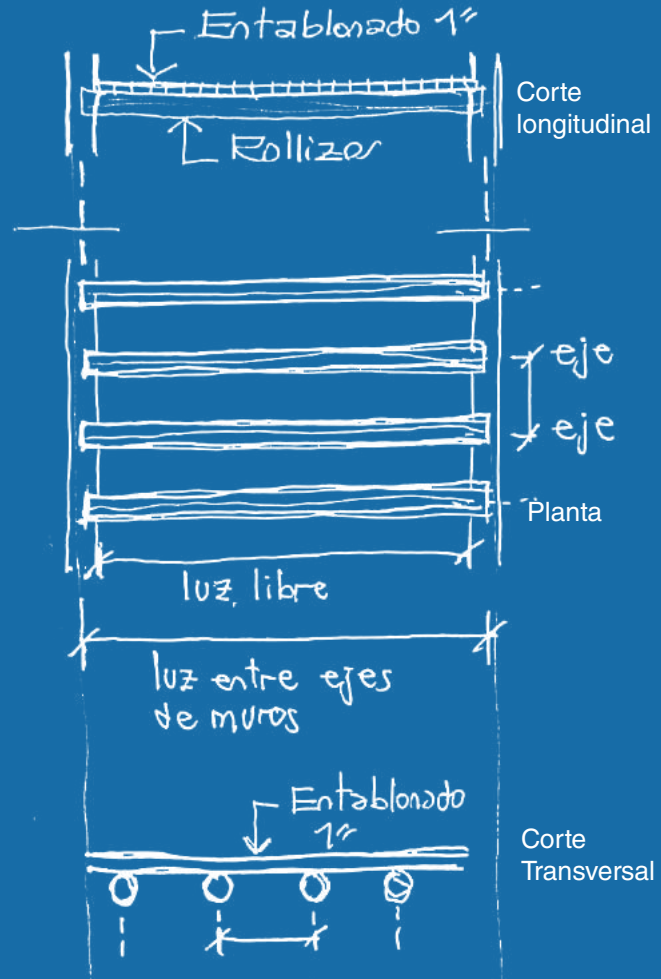 Entablonado 1"
Corte
longitudinal
Rollizos
eje
eje
Planta
luz libre
luz entre ejes
de muros
Entablonado
1"
Corte
Transversal